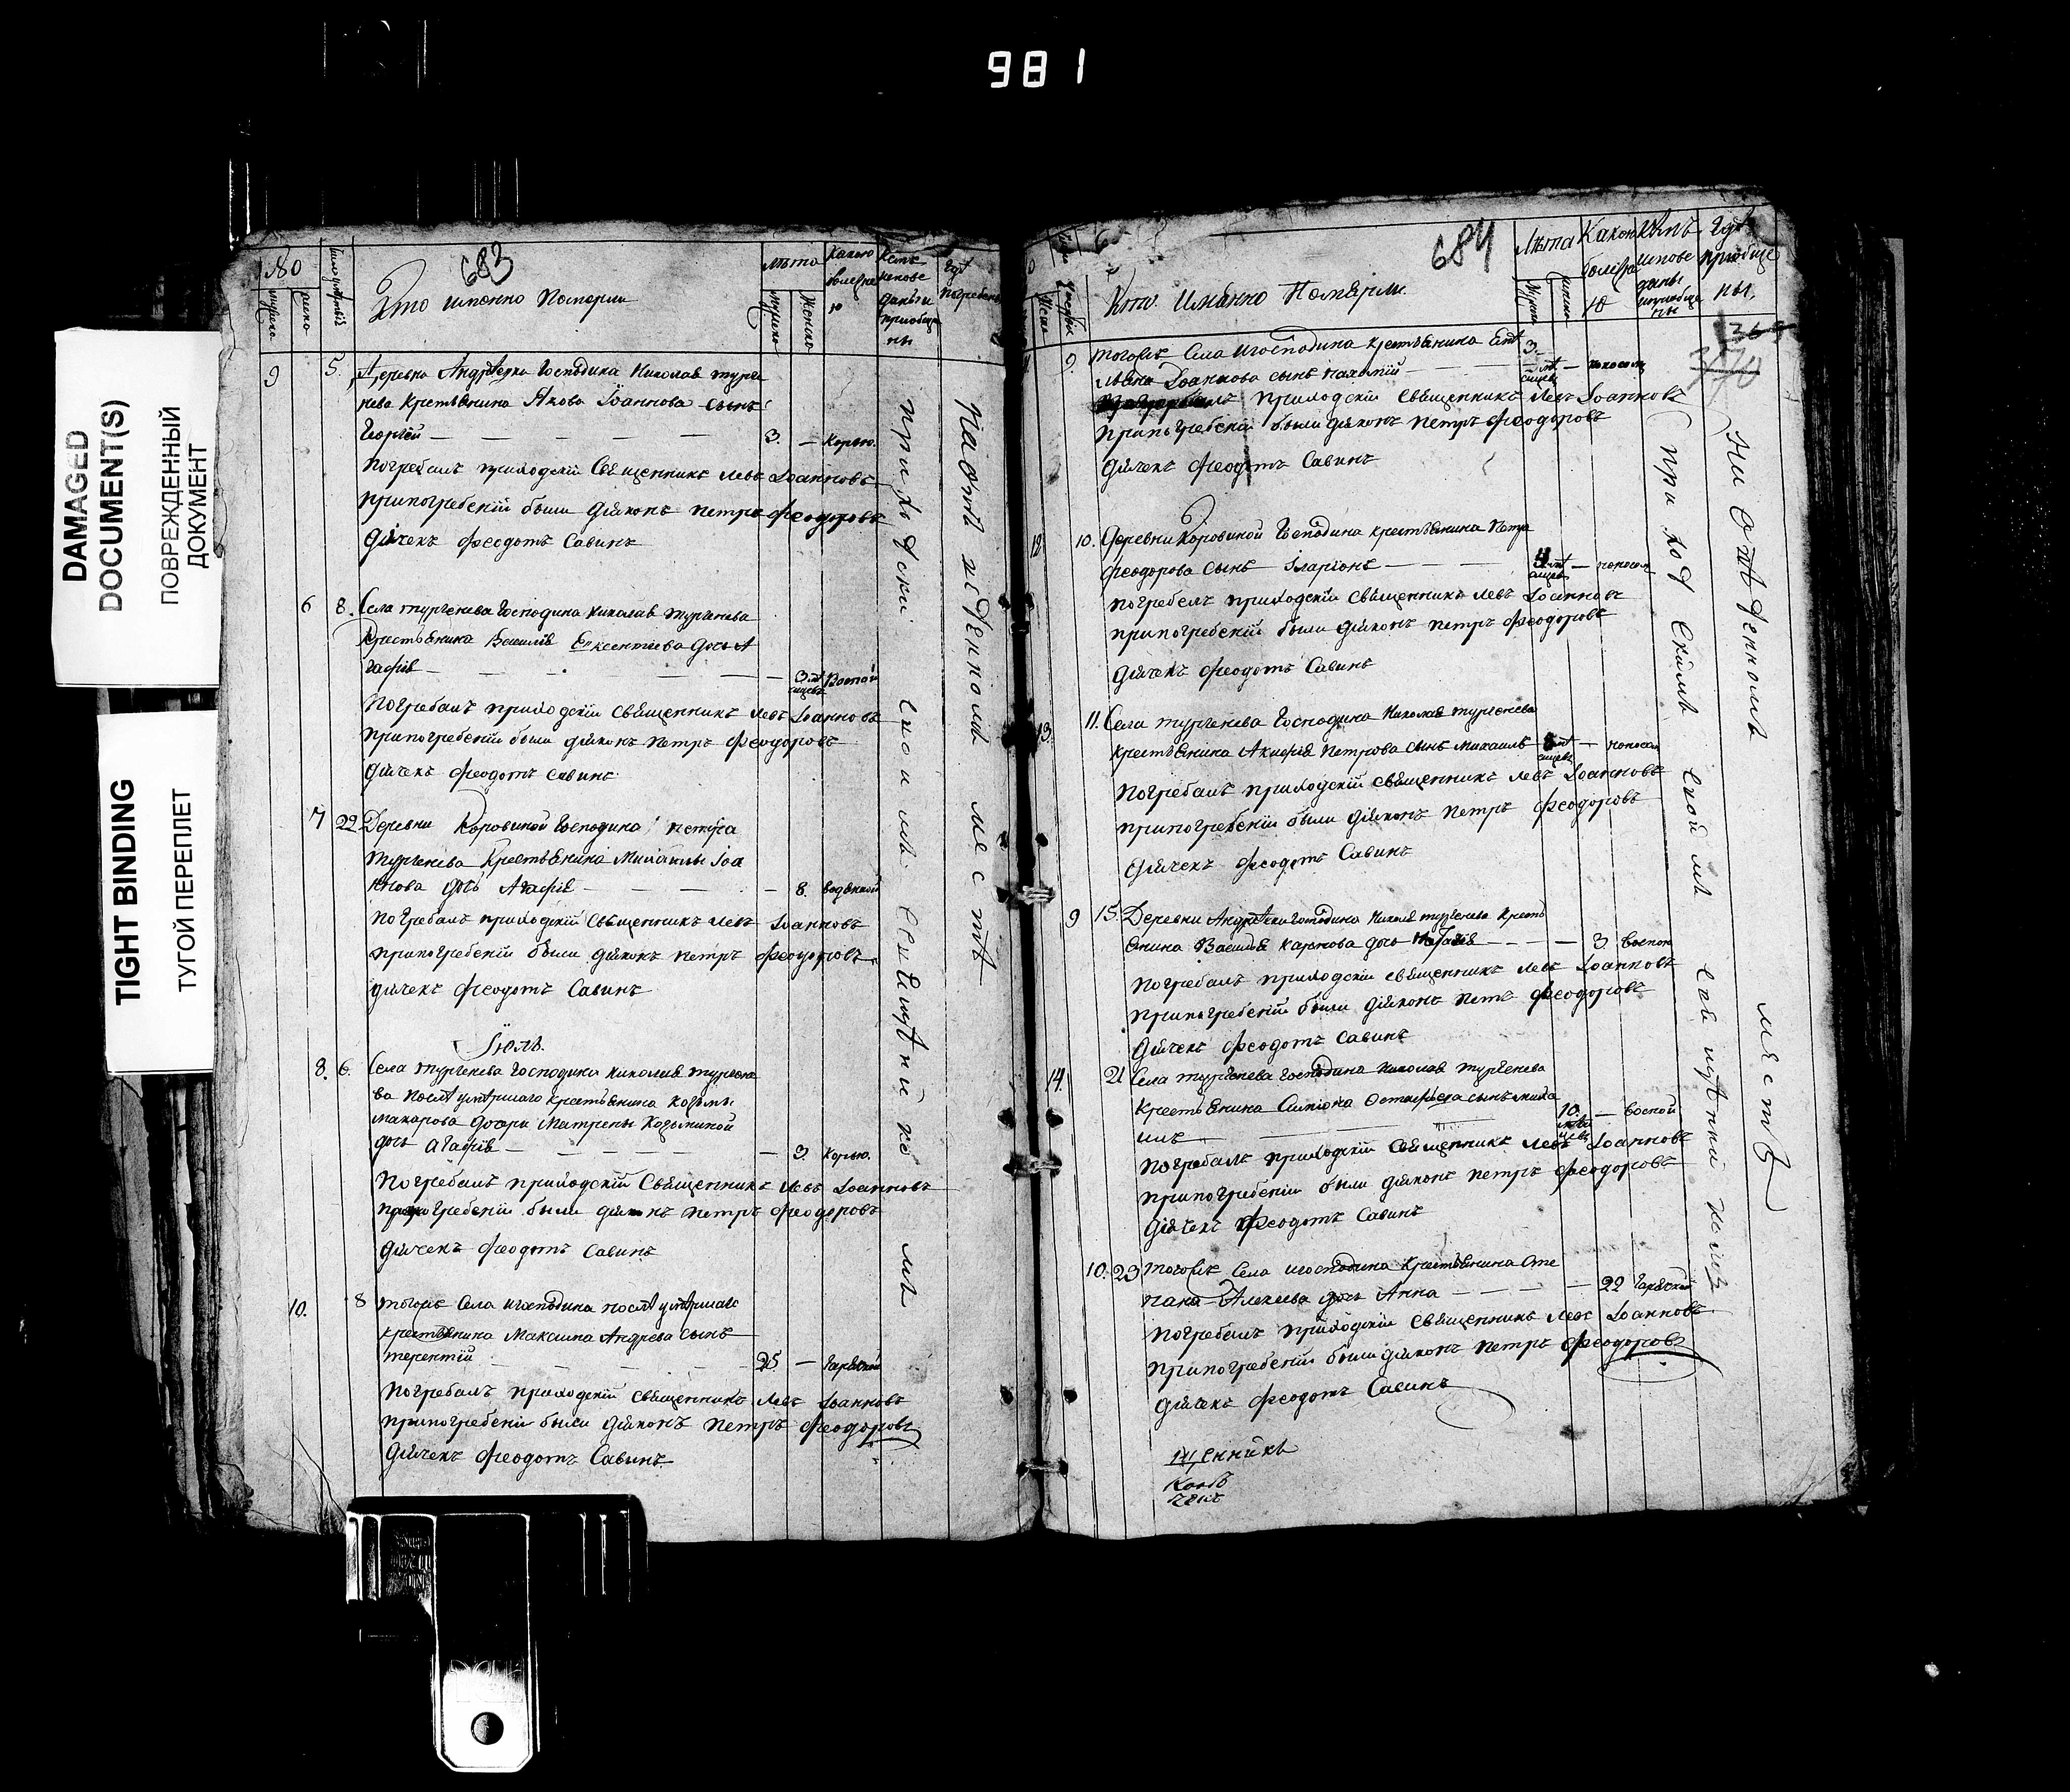 981
DAMAGED
DOCUMENT(S)
ПОВРЕЖДЕННЫЙ
ДОКУМЕНТ
TIGHT BINDING
ТУГОЙ ПЕРЕПЛЕТ
683
№
Кто именно Померли
мужеско
женско
Лѣта
Какою
болезнею
Кемъ
исповеданы и
приобще
ны
гдѣ
погребены
9 5. Деревни Андрѣевки Господина Николая Турге
нева Крестьянина Якова Иоаннова сынъ
Георгій — 3. — Корью.
Погребалъ приходскій Священникъ Левъ Иоанновъ
припогребеніи были діяконъ Петръ Феодоровъ
дьячекъ Феодотъ Савинъ
6 8. Села Тургенева Господина Николая Тургенева
Крестьянина Василія Евксентіева дочь А
гафія — 3 мѣсяцевъ Воспой
Погребалъ приходскій Священникъ Левъ Иоанновъ
припогребеніи были діяконъ Петръ Феодоровъ
дьячекъ Феодотъ Савинъ
7 22 Деревни Коровиной Господина Петра
Тургенева Крестьянина Михаилы Иоа
ннова дочь Агафія — 8. водянкой
Погребалъ приходскій Священникъ Левъ Иоанновъ
припогребеніи были діяконъ Петръ Феодоровъ
дьячекъ Феодотъ Савинъ
Іюль.
8. 6. Села Тургенева Господина Николая Тургене
ва послѣ умершаго крестьянина Козьмы
Макарова дочери Матрены Козьминой
дочь Агафія — 3. Корью.
Погребалъ приходскій Священникъ Левъ Иоанновъ
припогребеніи были діяконъ Петръ Феодоровъ
дьячекъ Феодотъ Савинъ
10. 8 Тогожъ Села игосподина послѣ умершаго
крестьянина Максима Андреева сынъ
Терентій — 25 — Горячкой
Погребалъ приходскій священникъ Левъ Иоанновъ
припогребеніи были діяконъ Петръ Феодоровъ
дьячекъ Феодотъ Савинъ
приходскимъ своимъ священникомъ
на отведенномъ местѣ
684
Кто Имянно Померли.
Лѣта
Какою
болезнею
Кѣмъ
исповеданы
иприобщены
Гдѣ
приобщены.
9. Тогожъ Села игосподина крестьянина Емѣ
льяна Иоаннова сынъ Пахомій 3. мѣсяцевъ — поносомъ
приходскій Священникъ Левъ Иоанновъ
припогребеніи были діяконъ Петръ Феодоровъ
дьячекъ Феодотъ Савинъ
12 10. Деревни Коровиной Господина крестьянина Петра
Феодорова сынъ Иларіонъ — 4 мѣсяцевъ — поносом
погребалъ приходскій Священникъ Левъ Иоанновъ
припогребеніи были діяконъ Петръ Феодоровъ
дьячекъ Феодотъ Савинъ
13. 11. Села Тургенева Господина Николая Тургенева
крестьянина Петрова сынъ Михаилъ — поносом
Погребалъ приходскій священникъ Левъ Иоанновъ
припогребеніи были діяконъ Петръ Феодоровъ
дьячекъ Феодотъ Савинъ
9 15. Деревни Андрѣевки Господина Николая Тургенева Кресть
янина Василья Карпова дочь — 3 Воспою
Погребалъ приходскій священникъ Левъ Иоанновъ
припогребеніи были діяконъ Петръ Феодоровъ
дьячекъ Феодотъ Савинъ
14. 21 Села Тургенева Господина Николая Тургенева
крестьянина Симіона Остафьева сынъ Миха
илъ — 10. мѣсяцевъ — воспой
Погребалъ приходскій священникъ Левъ Иоанновъ
припогребеніи были діяконъ Петръ Феодоровъ
дьячекъ Феодотъ Савинъ
10. 23 Тогожъ Села игосподина Крестьянина Сте
пана Алексеева дочь Анна — 22 Горячкой
Погребалъ приходскій священникъ Левъ Иоанновъ
припогребеніи были діяконъ Петръ Феодоровъ
дьячекъ Феодотъ Савинъ
щенникъ
приходскимъ своимъ священникомъ
На отведенномъ мѣстѣ